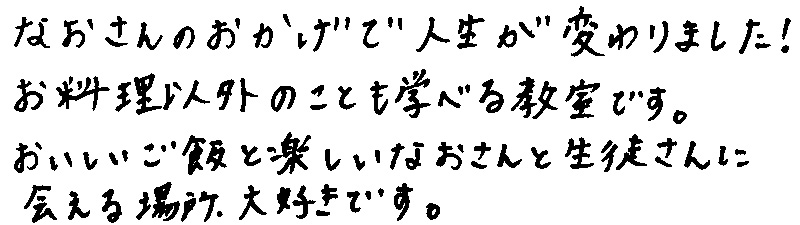 なおさんのおかげで人生が変わりました!
お料理以外のことも学べる教室です。
おいしいご飯と楽しいなおさんと生徒さんに
会える場所、大好きです。